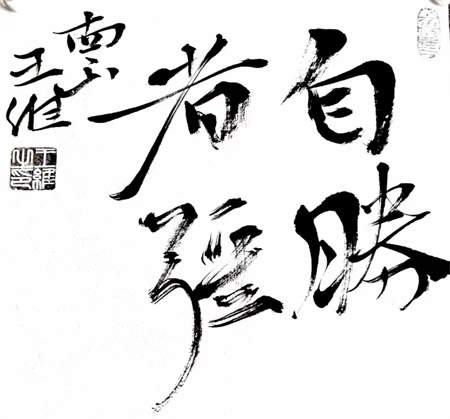 自勝
者強
王維
王維之印